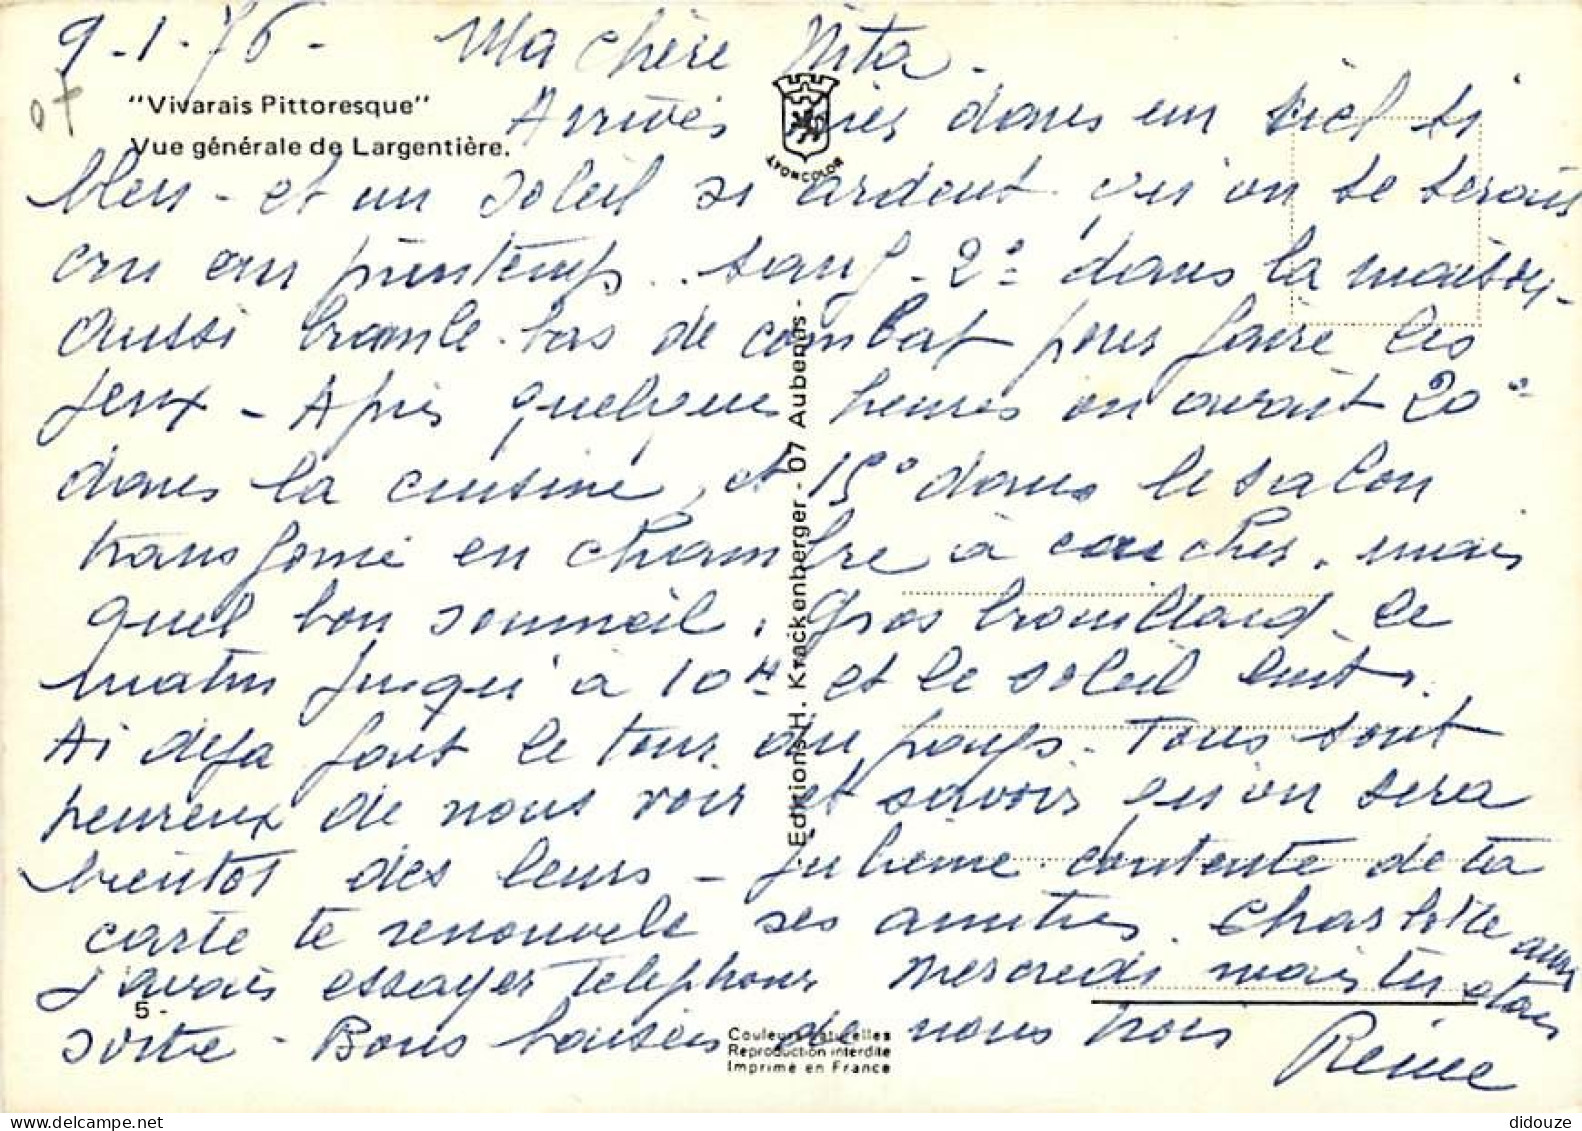 9-1-76 - Ma chère Nita -
07
"Vivarais Pittoresque"
Vue générale de Largentière.
LYONCOLOR
Arrivés hier dans un ciel si
bleu - et un soleil si ardent qu'on se serais
cru au printemps.. sauf - 2° dans la maison -
aussi branle-bas de combat pour faire les
feux - Après quelques heures on avait 20°
dans la cuisine, et 15° dans le salon
transformé en chambre à coucher, mais
quel bon sommeil. Gros brouillard le
matin jusqu'à 10H et le soleil luit.
Ai deja fait le tour du pays - Tous sont
heureux de nous voir et savoir qu'on sera
bientot des leurs - contente de ta
carte te renouvele ses amitiés. Charlotte aussi
J'avais essayer telephoner Mercredi mais tu etais
sortie - Bons baisers de nous trois
Reine
5 -
Editions H. Krackenberger - 07 Aubenas -
Couleurs naturelles
Reproduction interdite
Imprimé en France
didouze